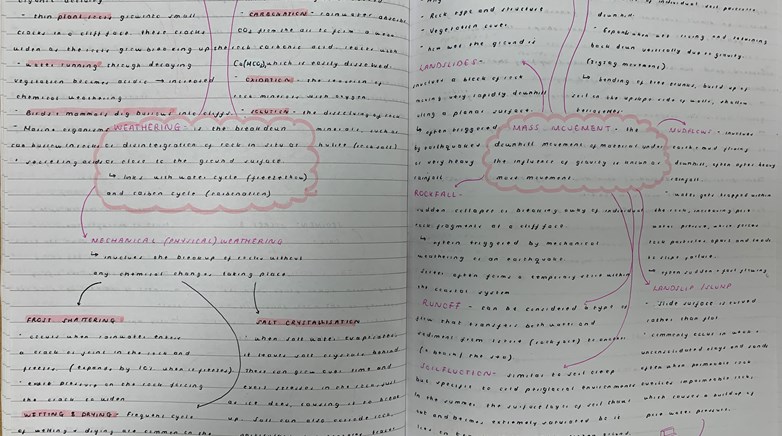 - thin plant roots grow into small
cracks in a cliff face. these cracks
widen as the roots grow breaking up the rock
- water running through decaying
vegetation becomes acidic → increased
chemical weathering
- Birds & mammals dig burrows into cliffs
- Marine organisms
can burrow into rocks
- CARBONATION - rainwater absorbs
CO₂ from the air to form a weak
carbonic acid. reacts with
which is easily dissolved.
- OXIDATION - the reaction of
rock minerals with oxygen
- SOLUTION - the dissolving of
minerals, such as
halite (rock salt)
WEATHERING - is the breakdown
or disintegration of rock in situ at
or close to the ground surface.
↳ links with water cycle (freeze thaw)
and carbon cycle (carbonation)
MECHANICAL (PHYSICAL) WEATHERING
↳ involves the breakup of rocks without
any chemical changes taking place
FROST SHATTERING
- occurs when rainwater enters
a crack or joint in the rock and
freezes. (expands by 10% when it freezes)
- exert pressure on the rock forcing
the crack to widen
WETTING & DRYING - Frequent cycle
of wetting & drying are common on the
SALT CRYSTALLISATION
- when salt water evaporates
it leaves salt crystals behind
these can grow over time and
exert stresses in the rock, just
as ice does, causing it to break
up. salt can also corrode rock,
- Rock type and structure
- Vegetation cover
- how wet the ground is
LANDSLIDES -
involve a block of rock
moving very rapidly downhill
along a planar surface.
↳ often triggered
by earthquakes
or very heavy
rainfall
of individual soil particles
downhill
- particles are rising and returning
back down vertically due to gravity.
(zigzag movement)
↳ bending of tree trunks, build up of
soil on the upslope side of walls, shallow
MASS MOVEMENT - the
downhill movement of material under
the influence of gravity is known as
mass movement
MUDFLOWS - involves
earth and mud flowing
downhill, often after heavy
rainfall.
- water gets trapped within
the rock, increasing pore
water pressure, which forces
rock particles apart and leads
to slope failure.
↳ often sudden & fast flowing
ROCKFALL -
sudden collapse or breaking away of individual
rock fragments at a cliff face.
↳ often triggered by mechanical
weathering or an earthquake
scree often forms a temporary store within
the coastal system
RUNOFF - can be considered a type of
flow that transfers both water and
sediment from one store (rock face) to another
(a beach / the sea)
SOLIFLUCTION - similar to soil creep
but specific to cold periglacial environments
In the summer, the surface layer of soil thaws
out and becomes extremely saturated bc it
lies on
LANDSLIP / SLUMP
- slide surface is curved
rather than flat
- commonly occur in weak &
unconsolidated clays and sands
often when permeable rock
overlies impermeable rock,
which causes a buildup of
pore water pressure.